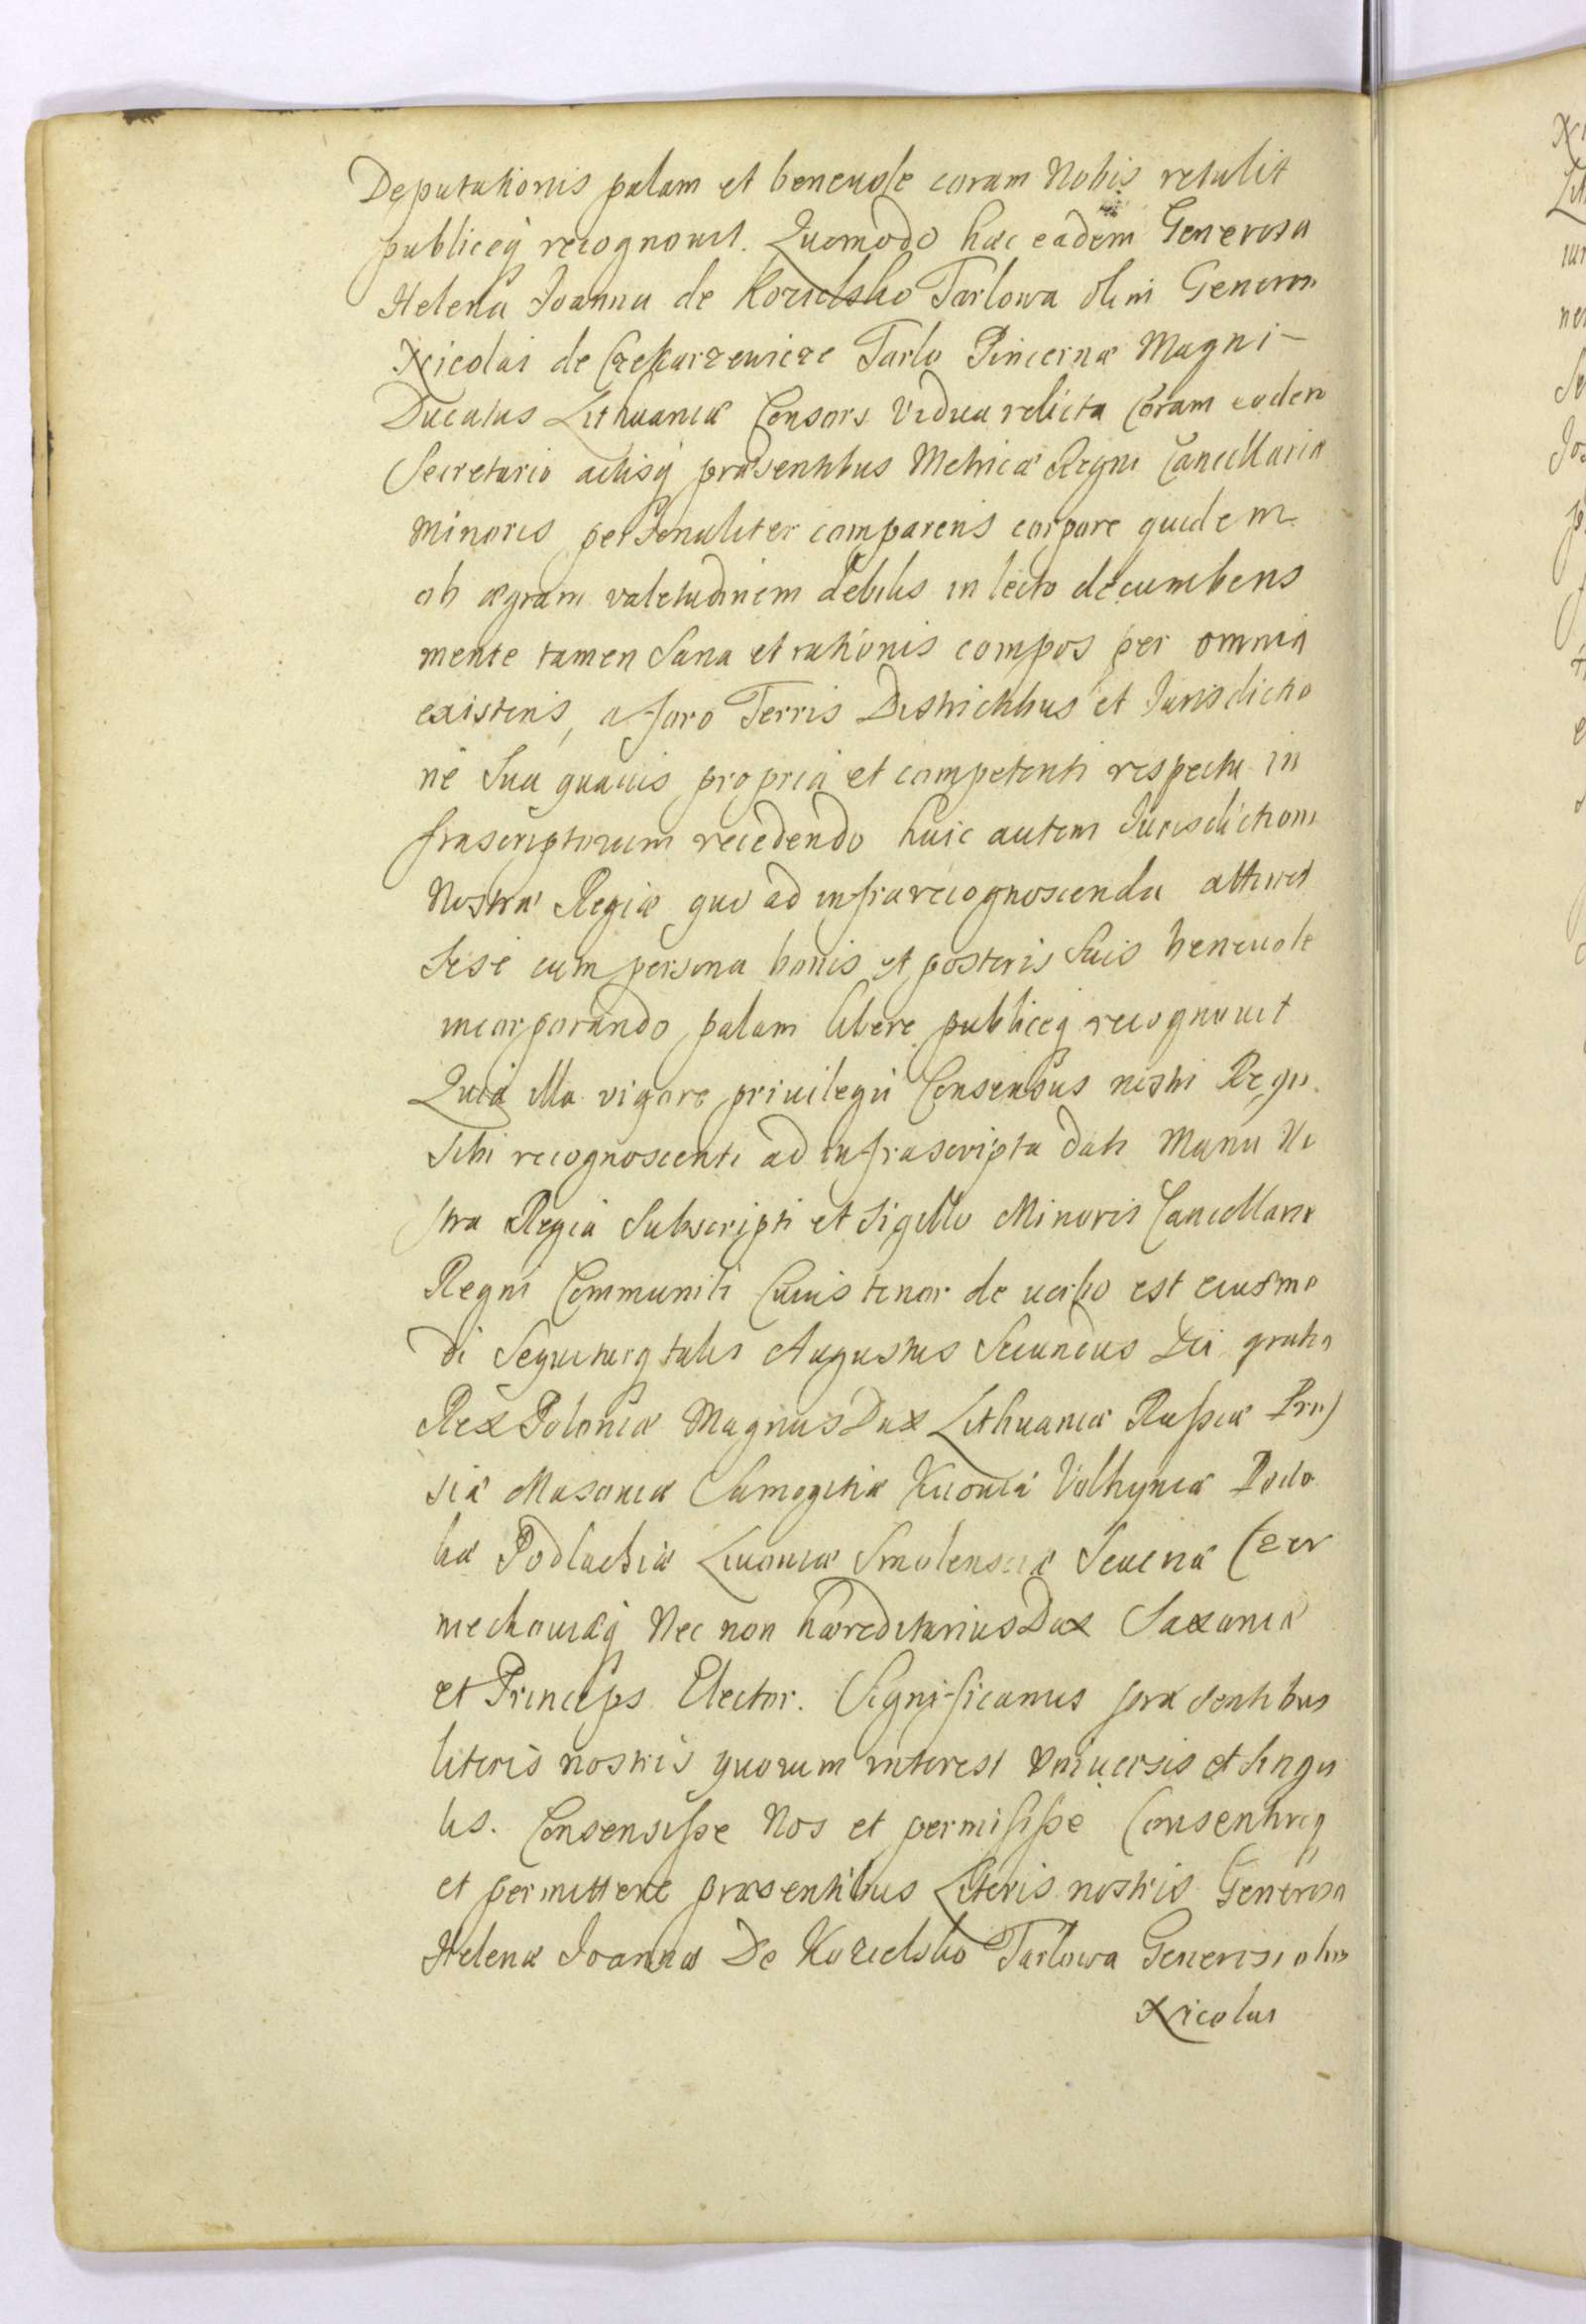 Deputationis palam et beneuole coram Nobis retulit
publiceq recognouit. Quomodo hæc eadem Generosa
Helena Joanna de Kozielsko Tarlowa olim Generosi
Nicolai de Czekarzewicze Tarlo Pincernæ Magni
Ducatus Lithuaniæ Consors Vidua relicta Coram eodem
Secretario actisq præsentibus Metricæ Regni Cancellariæ
Minoris personaliter comparens corpore quidem
ob ægram valetudinem debilis in lecto decumbens
mente tamen Sana et rationis compos per omnia
existens, a foro Terris Districtibus et Jurisdictio
ne Sua quauis propria et competenti respectu in
frascriptorum recedendo huic autem Jurisdictioni
Nostræ Regiæ quo ad infrarecognoscenda attinet
Sese cum persona bonis et posteris Suis beneuole
incorporando palam libere publiceq recognouit
Quia illa vigore priuilegii Consensus nostri Regii
Sibi recognoscenti ad infrascripta dati Manu No
stra Regia Subscripti et Sigillo Minoris Cancellariæ
Regni Communiti Cuius tenor de uerbo est eiusmo
di Sequiturq talis Augustus Secundus Dei gratia
Rex Poloniæ Magnus Dux Lithuaniæ Russiæ Prus
siæ Masouiæ Samogitiæ Kiiouiæ Volhyniæ Podo
liæ Podlachiæ Liuoniæ Smolensciæ Seueriæ Czer
niechouiæq Nec non hæreditarius Dux Saxoniæ
et Princeps Elector. Significamus præsentibus
literis nostris quorum interest Vniuersis et singu
lis. Consensisse Nos et permisisse Consentireq
et permittere præsentibus Literis nostris Generosæ
Helenæ Joannæ De Kozielsko Tarlowa Generosi olim
Nicolai